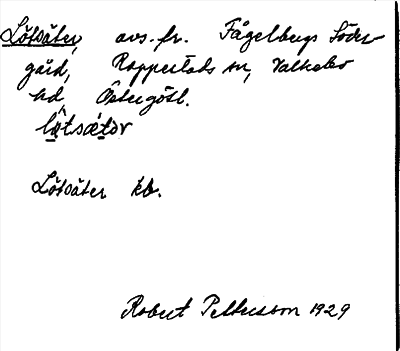 Lötsäter, avs. fr. Fågelbergs Söder-
gård, Rappestads sn, Valkebo
hd, Östergötl.
lötsætər
Lötsäter kb.
Robert Pettersson 1929